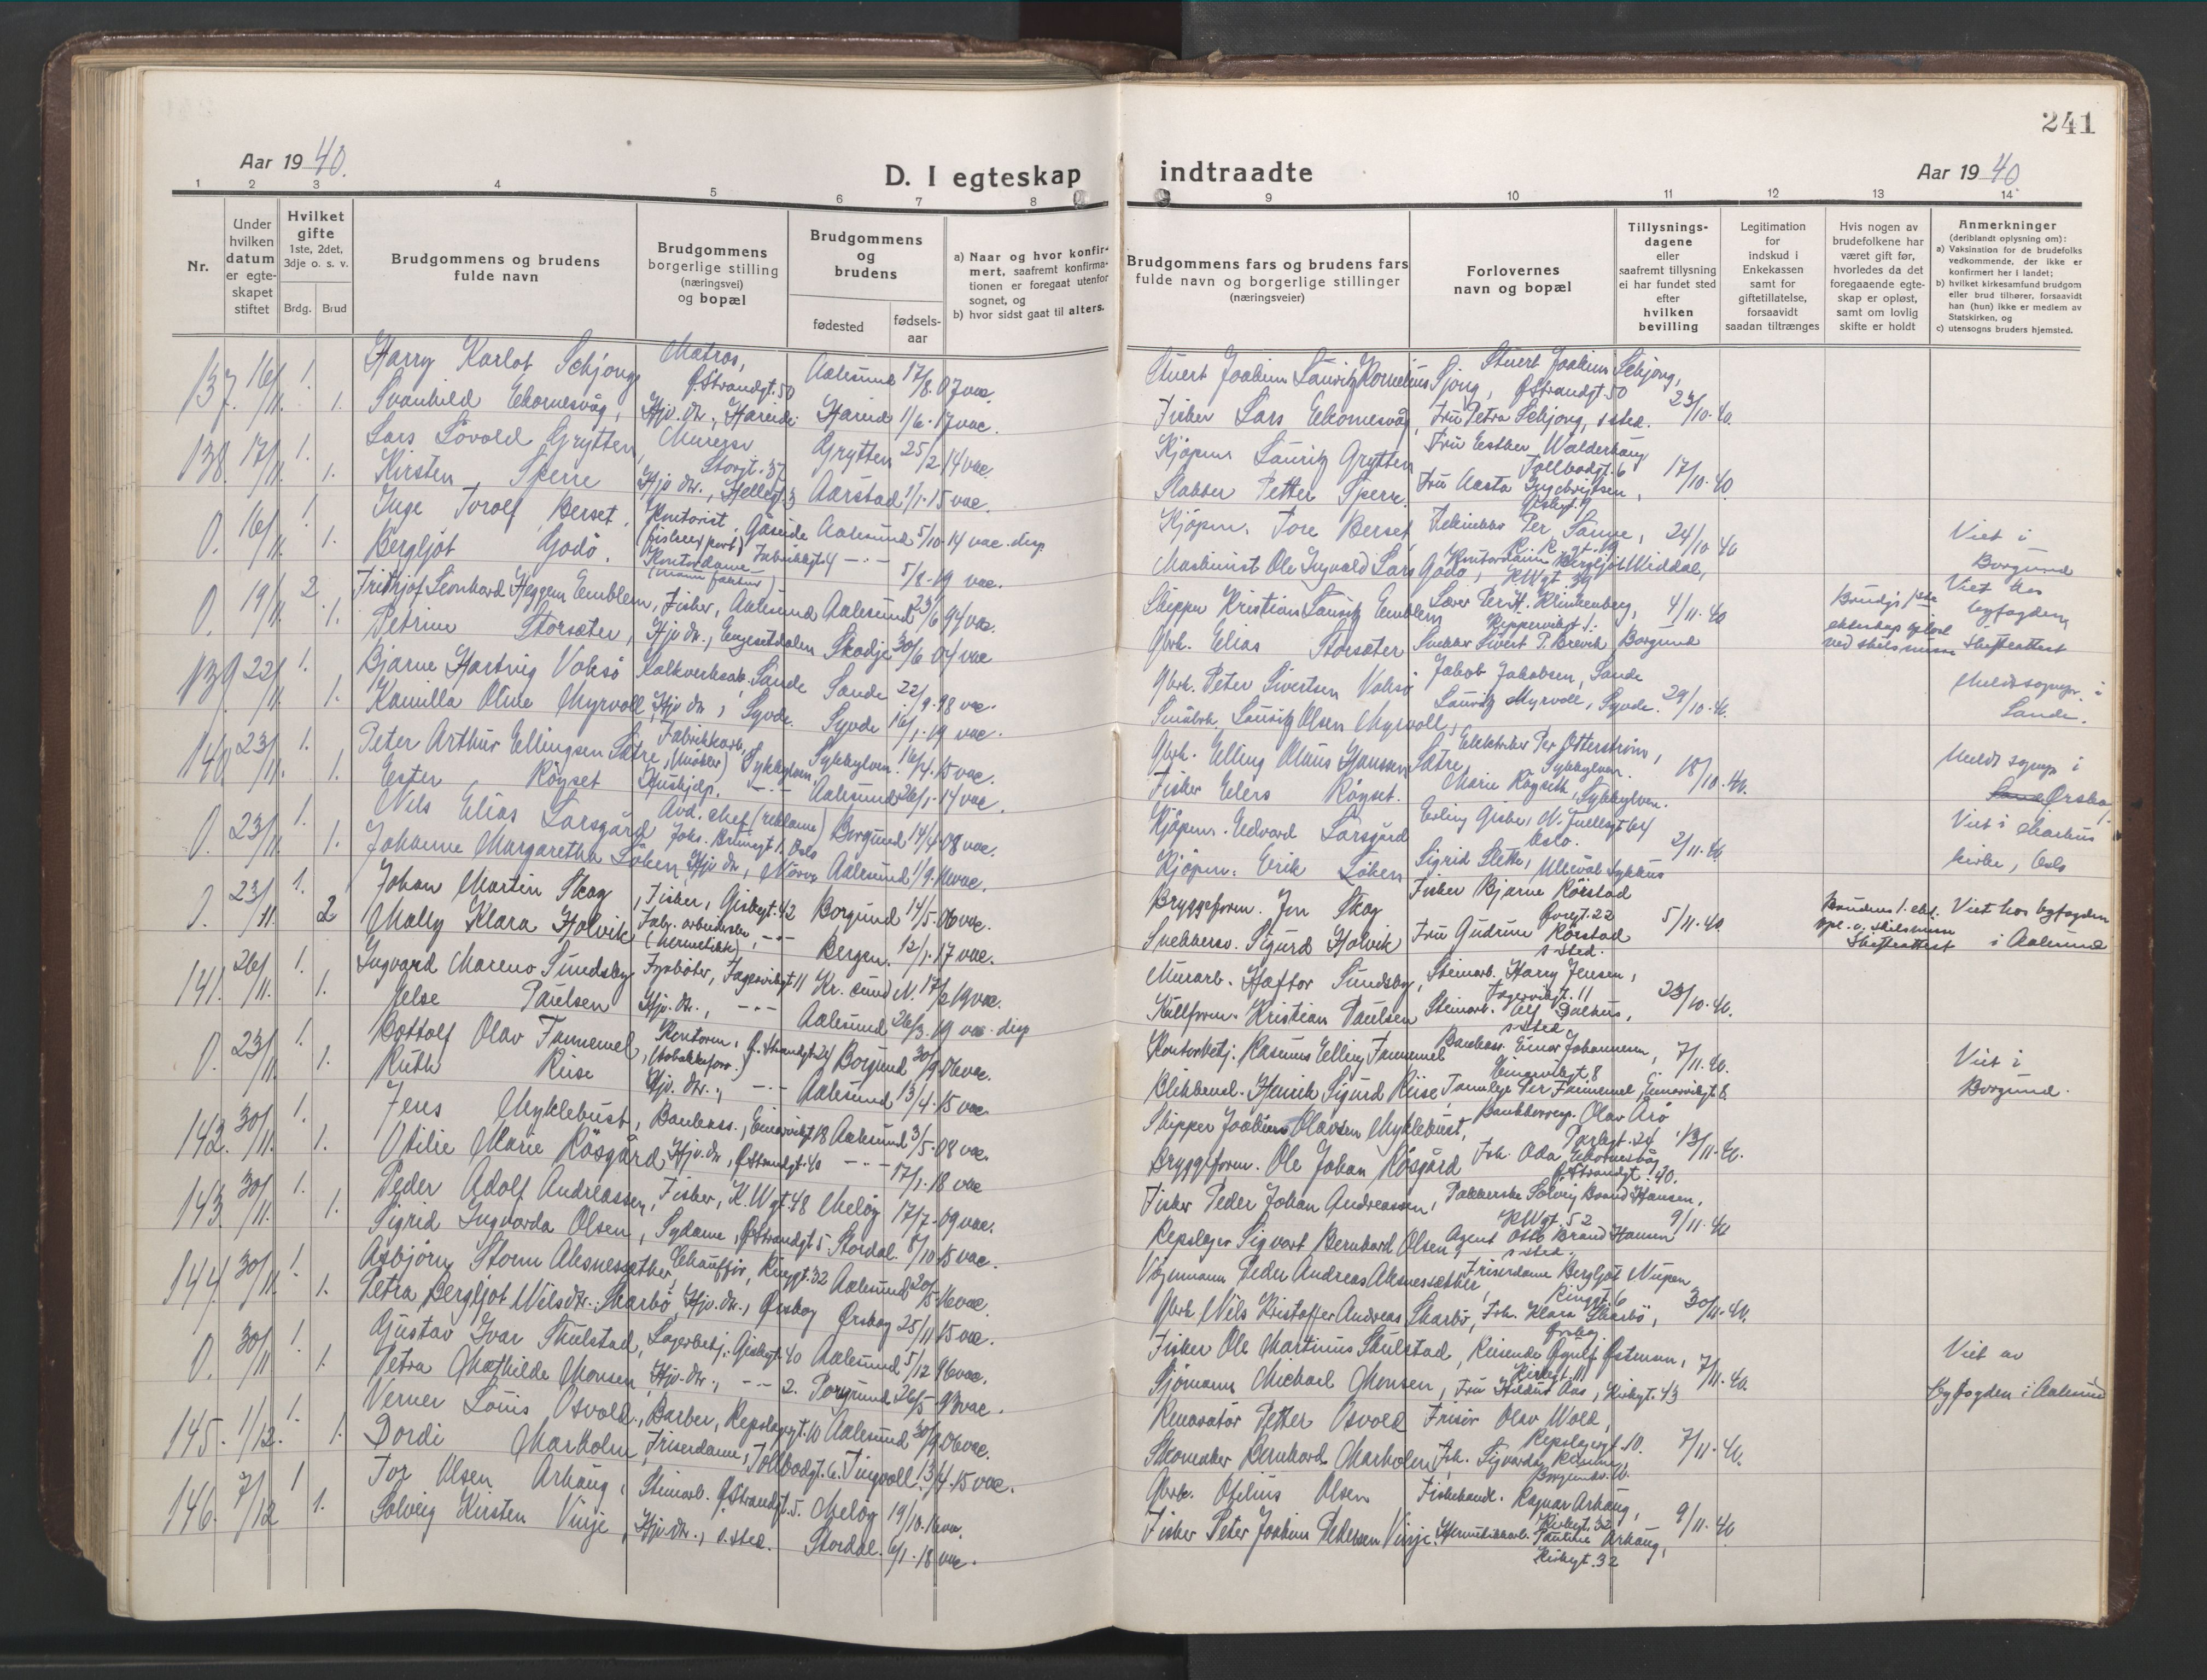 241
Aar 1940.
D. I egteskap indtraadte
Aar 1940
1 2 3 4 5 6 7 8 9 10 11 12 13 14
Nr.
Under hvilken datum er egteskapet stiftet
Hvilket gifte 1ste, 2det, 3dje o. s. v.
Brdg. Brud
Brudgommens og brudens fulde navn
Brudgommens borgerlige stilling (næringsvei) og bopæl
Brudgommens og brudens
fødested
fødsels-aar
a) Naar og hvor konfirmert, saafremt konfirmationen er foregaat utenfor sognet, og
b) hvor sidst gaat til alters.
Brudgommens fars og brudens fars fulde navn og borgerlige stillinger (næringsveier)
Forlovernes navn og bopæl
Tillysningsdagene eller saafremt tillysning ei har fundet sted efter hvilken bevilling
Legitimation for indskud i Enkekassen samt for giftetillatelse, forsaavidt saadan tiltrænges
Hvis nogen av brudefolkene har været gift før, hvorledes da det foregaaende egteskap er opløst, samt om lovlig skifte er holdt
Anmerkninger (deriblandt oplysning om):
a) Vaksination for de brudefolks vedkommende, der ikke er konfirmert her i landet;
b) hvilket kirkesamfund brudgom eller brud tilhører, forsaavidt han (hun) ikke er medlem av Statskirken, og
c) utensogns bruders hjemsted.
137. 16/11. 1. Harry Karlot Schjong Matros, Ø.Strandgt. 50 Aalesund 17/8. 07 vac. Stuert Joakim Lauritz Kornelius Sjong, Stuert Joakim Schjong, ØStrandgt. 50 23/10. 40.
1. Svanhild Ekornesvåg, Hjv. dr., Hareid Hareid 1/6. 17 vac. Fisker Lars Ekornesvåg, Fru Petra Schjong, s sted.
138. 17/11. 1. Lars Lövold Grytten, Murersv. Storgt. 37 Grytten 25/2. 14 vac. Kjøpm. Lauritz Grytten Fru Esther Walderhaug Tollbodgt. 6 17/10. 40.
1. Kirsten Sperre Hjv dr., Hellegt. 3 Aarstad 1/1. 15 vac. Slakter Petter Sperre. Fru Aasta Ingebrigtsen,
0. 16/11. 1. Inge Torolf Berset, Kontorist, Gåseide (fiskeexport) Aalesund 5/10. 14 vac. disp. Kjøpm. Tore Berset Per Sanne, 24/10. 40 Viet i Borgund
1. Bergljot Godö. Kontordame, Fabrikkgt. 4 5/8. 19 vac. Maskinist Ole Ingvald Lars Godö, Kontordame Bergljot Middal, KWgt. 39
0. 19/11. 2. Fridthjof Leonhard Heggem Emblem, Fisker, Aalesund Aalesund 23/6 94 vac. Skipper Kristian Lauritz Emblem Lærer Per H. Krinkenberg, 4/11. 40 Viet hos byfogden Skifteattest
1. Petrine Storsæter, Hjv dr., Engesetdalen Skodje 30/6. 04 vac Gbrk. Elias Storsæter Snekker Sivert P. Brevik Borgund
139. 22/11. 1. Bjarne Hartvig Voksö Kalkverksarb. Sande Sande 22/9. 98 vac. Gbrk. Peter Sivertsen Voksö Jakob Jakobsen, Sande 29/10. 40. Meldt sogn. i Sande.
1. Kamilla Oline Myrvoll, Hjv dr, Syvde. Syvde 16/1. 19 vac. Småbrk. Lauritz Olsen Myrvoll, Lauritz Myrvoll, Syvde.
140. 23/11. 1. Peter Arthur Ellingsen Sætre, Fabrikkarb. (møbler) Sykkylven Sykkylven 16/4. 15 vac. Gbrk. Elling Olaus Hansen Sætre, Elektriker Per Otterström, Sykkylven. 18/10. 40. Meldt sogn i Ørskog
1. Ester Röyset Hushjelp. Aalesund 26/1. 14 vac. Fisker Elers Röyset. Marie Röyseth, Sykkylven.
0. 23/11. 1. Nils Elias Larsgård Avd. chef (reklame) Joh. Brunsgt 1. Oslo Borgund 14/4. 08 vac. Kjøpm. Edvard Larsgård Erling Giske, N. Juellsgt 64 Oslo. 2/11. 40. Viet i Markus kirke, Oslo
1. Johanne Margaretha Löken, Hjv dr, Nörve Aalesund 1/9. 16 vac. Kjøpm. Erik Löken Sigrid Slette, Ullevål sykehus
0. 23/11. 1. Johan Martin Skog, Fisker, Giskegt. 42 Borgund 14/5. 06 vac. Bryggeform. Jon Skog Fisker Bjarne Rörstad 5/11. 40. Brudens 1. ekt. opl. v. skilsmisse Skifteattest Viet hos byfogden i Aalesund
2 Molly Klara Holvik Fabr. arbeiderske, (hermetikk) Bergen. 12/1. 17 vac. Snekkersv. Sigurd Holvik Fru Gudrun Rörstad s sted.
141. 26/11. 1. Ingvard Mareno Sundsby Fyrbøter, Fagervikgt 11 Kr. sund N. 17/2 19 vac. Murarb. Haftor Sundsby, Steinarb. Harry Jensen, Fagervikgt. 11 23/10. 40.
1. Jelse Paulsen Hjv. dr., Aalesund 26/3. 19 vac. disp Kullform. Kristian Paulsen Steinarb. Alf Dalhus, s sted.
0. 23/11. 1. Bottolf Olav Fannemel, Kontorm., Ø. Strandgt. 24 (tobakkforr.) Borgund 30/9. 06 vac. Kontorbetj. Rasmus Elling Fannemel Bankass. Einar Johannesen, Einarvikgt. 8 7/11. 40. Viet i Borgund.
1. Ruth Riise Hjv. dr., Aalesund 13/4. 15 vac. Blikkensl. Henrik Sigurd Riise, Tannlege Per Fannemel, Einarvikgt. 8
142. 30/11. 1. Jens Myklebust, Bankass., Einarvikgt 18 Aalesund 3/5. 08 vac. Skipper Joakim Olavsen Myklebust, Bankkorresp. Olav Arö Parkgt. 24 13/11. 40.
1. Otilie Marie Råsgård, Hjv. dr, ØStrandgt. 40 17/1. 18 vac Bryggeform. Ole Johan Råsgård Frk. Oda Ekornesvåg ØStrandgt. 40.
143. 30/11. 1. Peder Adolf Andreassen, Fisker, K.Wgt. 48 Meløy 17/7. 09 vac. Fisker Peder Johan Andreassen, Pakkerske Solveig Brand Hansen, KWgt. 52 9/11. 40
1. Sigrid Ingvorda Olsen, Sydame, ØStrandgt. 5 Stordal. 8/10. 15 vac. Repslager Sigvart Bernhard Olsen, Agent Otto Brand Hansen s sted.
144. 30/11. 1. Asbjörn Storm Aksnessæther, Chauffør, Ringgt. 32 Aalesund 20/5. 16 vac. Vognmann Peder Andreas Aksnessæther, Friserdame Bergljot Nupen Ringgt. 6 30/11. 40.
1. Petra Bergljot Nilsdr. Skarbö, Hjv. dr., Ørskog Ørskog 25/11 15 vac. Gbrk Nils Kristoffer Andreas Skarbö, Frk. Klara Skarbö, Ørskog
0. 30/11 1. Gustav Ivar Skulstad, Lagerbetj., Giskegt. 40 Aalesund 5/12 96 vac. Fisker Ole Martinus Skulstad, Reisende Østensen, Kirkegt. 11 7/11. 40. Viet av byfogden i Aalesund
1. Petra Mathilde Monsen, Hjv. dr., 2. Porsgrund 26/5. 93 vac. Sjømann Michael Monsen, Fru Hildur Aas, Kirkegt. 43
145. 1/12. 1. Verner Louis Osvold, Barber, Repslagergt. 10 Aalesund 30/9. 06 vac. Renovatør Petter Osvold Frisør Olav Wold, Repslagergt. 10. 7/11. 40.
1. Dordi Markolm, Friserdame, Tollbodgt. 6. Tingvoll 13/4. 15 vac. Skomaker Bernhard Markolm, Frk. Sigvarda
146. 7/12 1 Tor Olsen Arhaug, Steinarb. ØStrandgt. 5. Meløy 19/10. 16 vac. Gbrk. Otelius Olsen Fiskehandl. Ragnar Arhaug, Kirkegt. 32 9/11. 40
1. Solveig Kirsten Vinje, Hjv. dr., s. sted. Stordal. 6/1. 18 vac. Fisker Peter Joakim Pedersen Vinje. Hermetikkarb. Pauline Arhaug, Kirkegt. 32